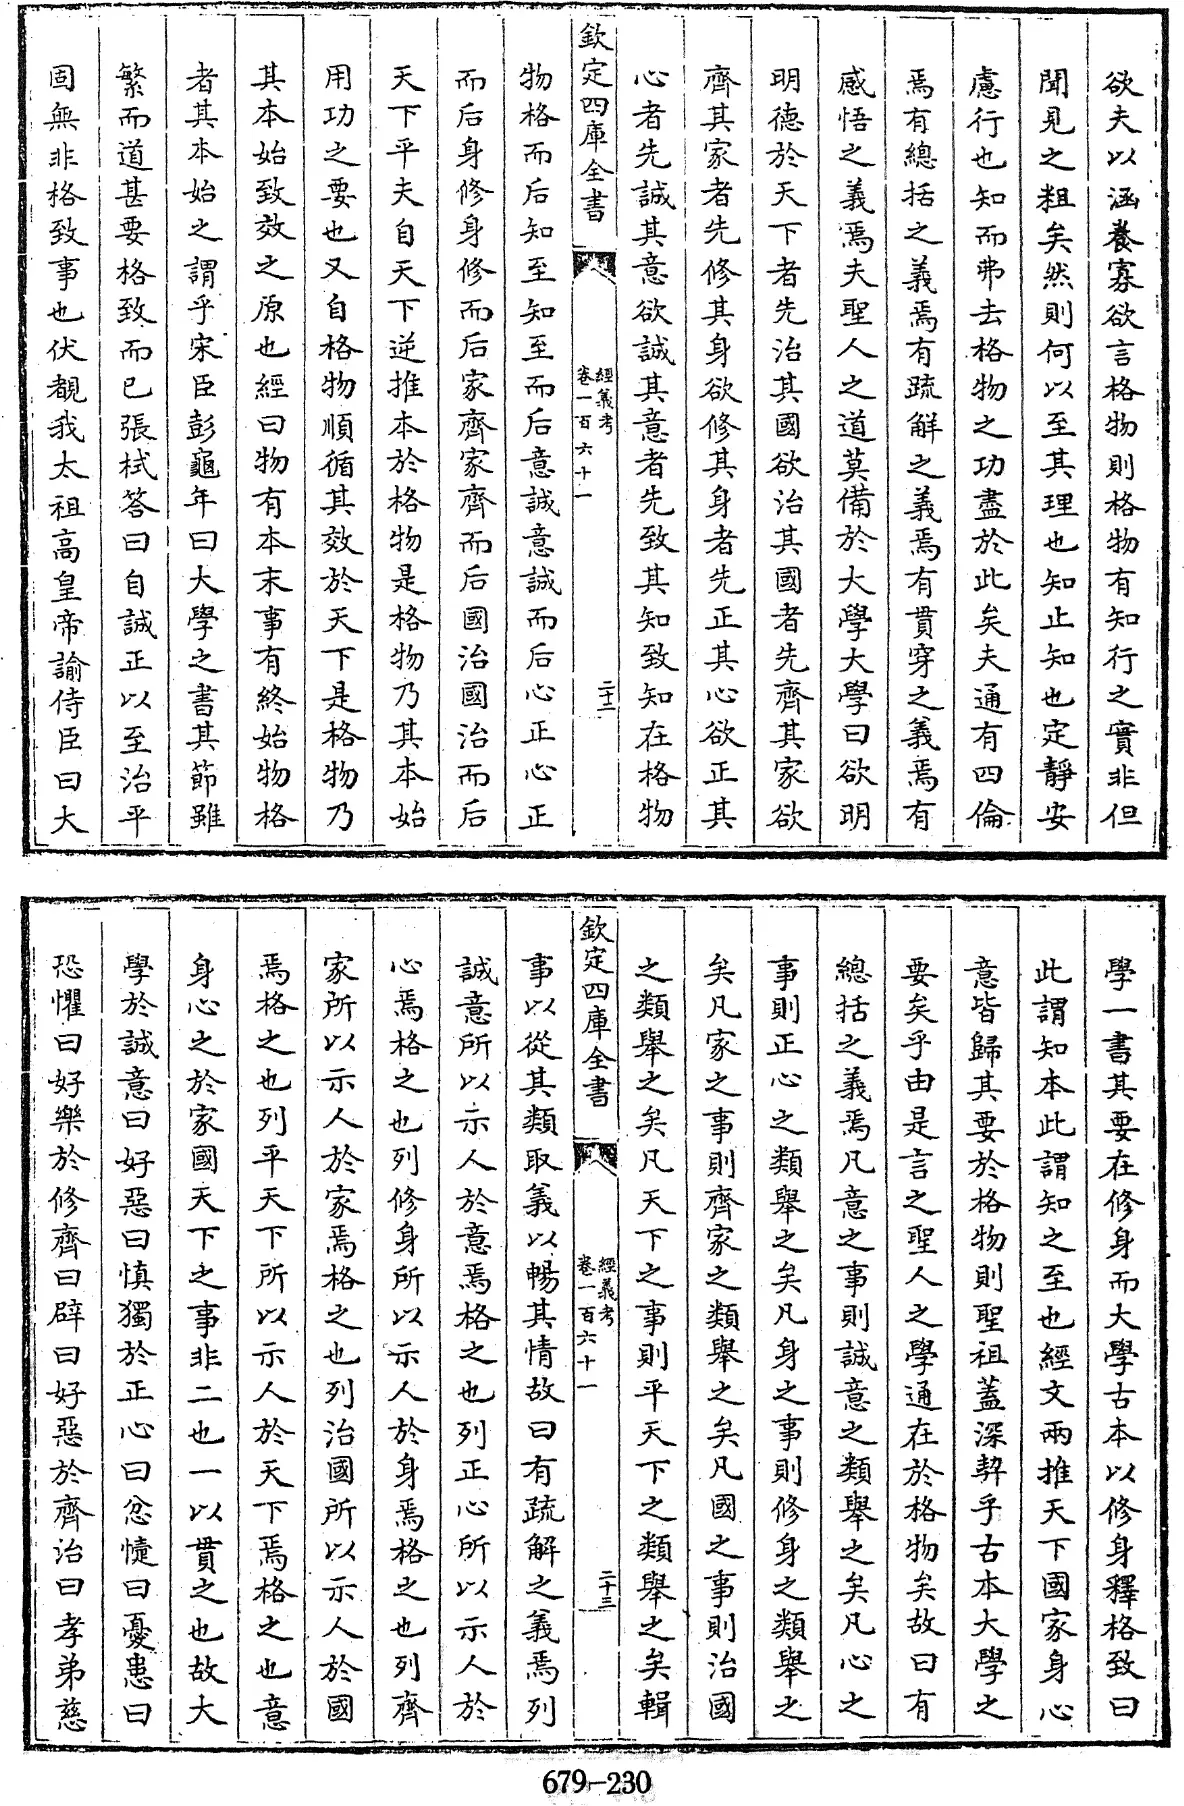 欲夫以涵養寡欲言格物則格物有知行之實非但
聞見之粗矣然則何以至其理也知止知也定靜安
慮行也知而弗去格物之功盡於此矣夫通有四倫
焉有總括之義焉有疏解之義焉有貫穿之義焉有
感悟之義焉夫聖人之道莫備於大學大學曰欲明
明德於天下者先治其國欲治其國者先齊其家欲
齊其家者先修其身欲修其身者先正其心欲正其
心者先誠其意欲誠其意者先致其知致知在格物
欽定四庫全書
經義考
卷一百六十一
二十二
物格而后知至知至而后意誠意誠而后心正心正
而后身修身修而后家齊家齊而后國治國治而后
天下平夫自天下逆推本於格物是格物乃其本始
用功之要也又自格物順循其效於天下是格物乃
其本始致效之原也經曰物有本末事有終始物格
者其本始之謂乎宋臣彭龜年曰大學之書其節雖
繁而道甚要格致而已張栻答曰自誠正以至治平
固無非格致事也伏覩我太祖高皇帝諭侍臣曰大
學一書其要在修身而大學古本以修身釋格致曰
此謂知本此謂知之至也經文兩推天下國家身心
意皆歸其要於格物則聖祖蓋深契乎古本大學之
要矣乎由是言之聖人之學通在於格物矣故曰有
總括之義焉凡意之事則誠意之類舉之矣凡心之
事則正心之類舉之矣凡身之事則修身之類舉之
矣凡家之事則齊家之類舉之矣凡國之事則治國
之類舉之矣凡天下之事則平天下之類舉之矣輯
欽定四庫全書
經義考
卷一百六十一
二十三
事以從其類取義以暢其情故曰有疏解之義焉列
誠意所以示人於意焉格之也列正心所以示人於
心焉格之也列修身所以示人於身焉格之也列齊
家所以示人於家焉格之也列治國所以示人於國
焉格之也列平天下所以示人於天下焉格之也意
身心之於家國天下之事非二也一以貫之也故大
學於誠意曰好惡曰慎獨於正心曰忿懥曰憂患曰
恐懼曰好樂於修齊曰辟曰好惡於齊治曰孝弟慈
679-230